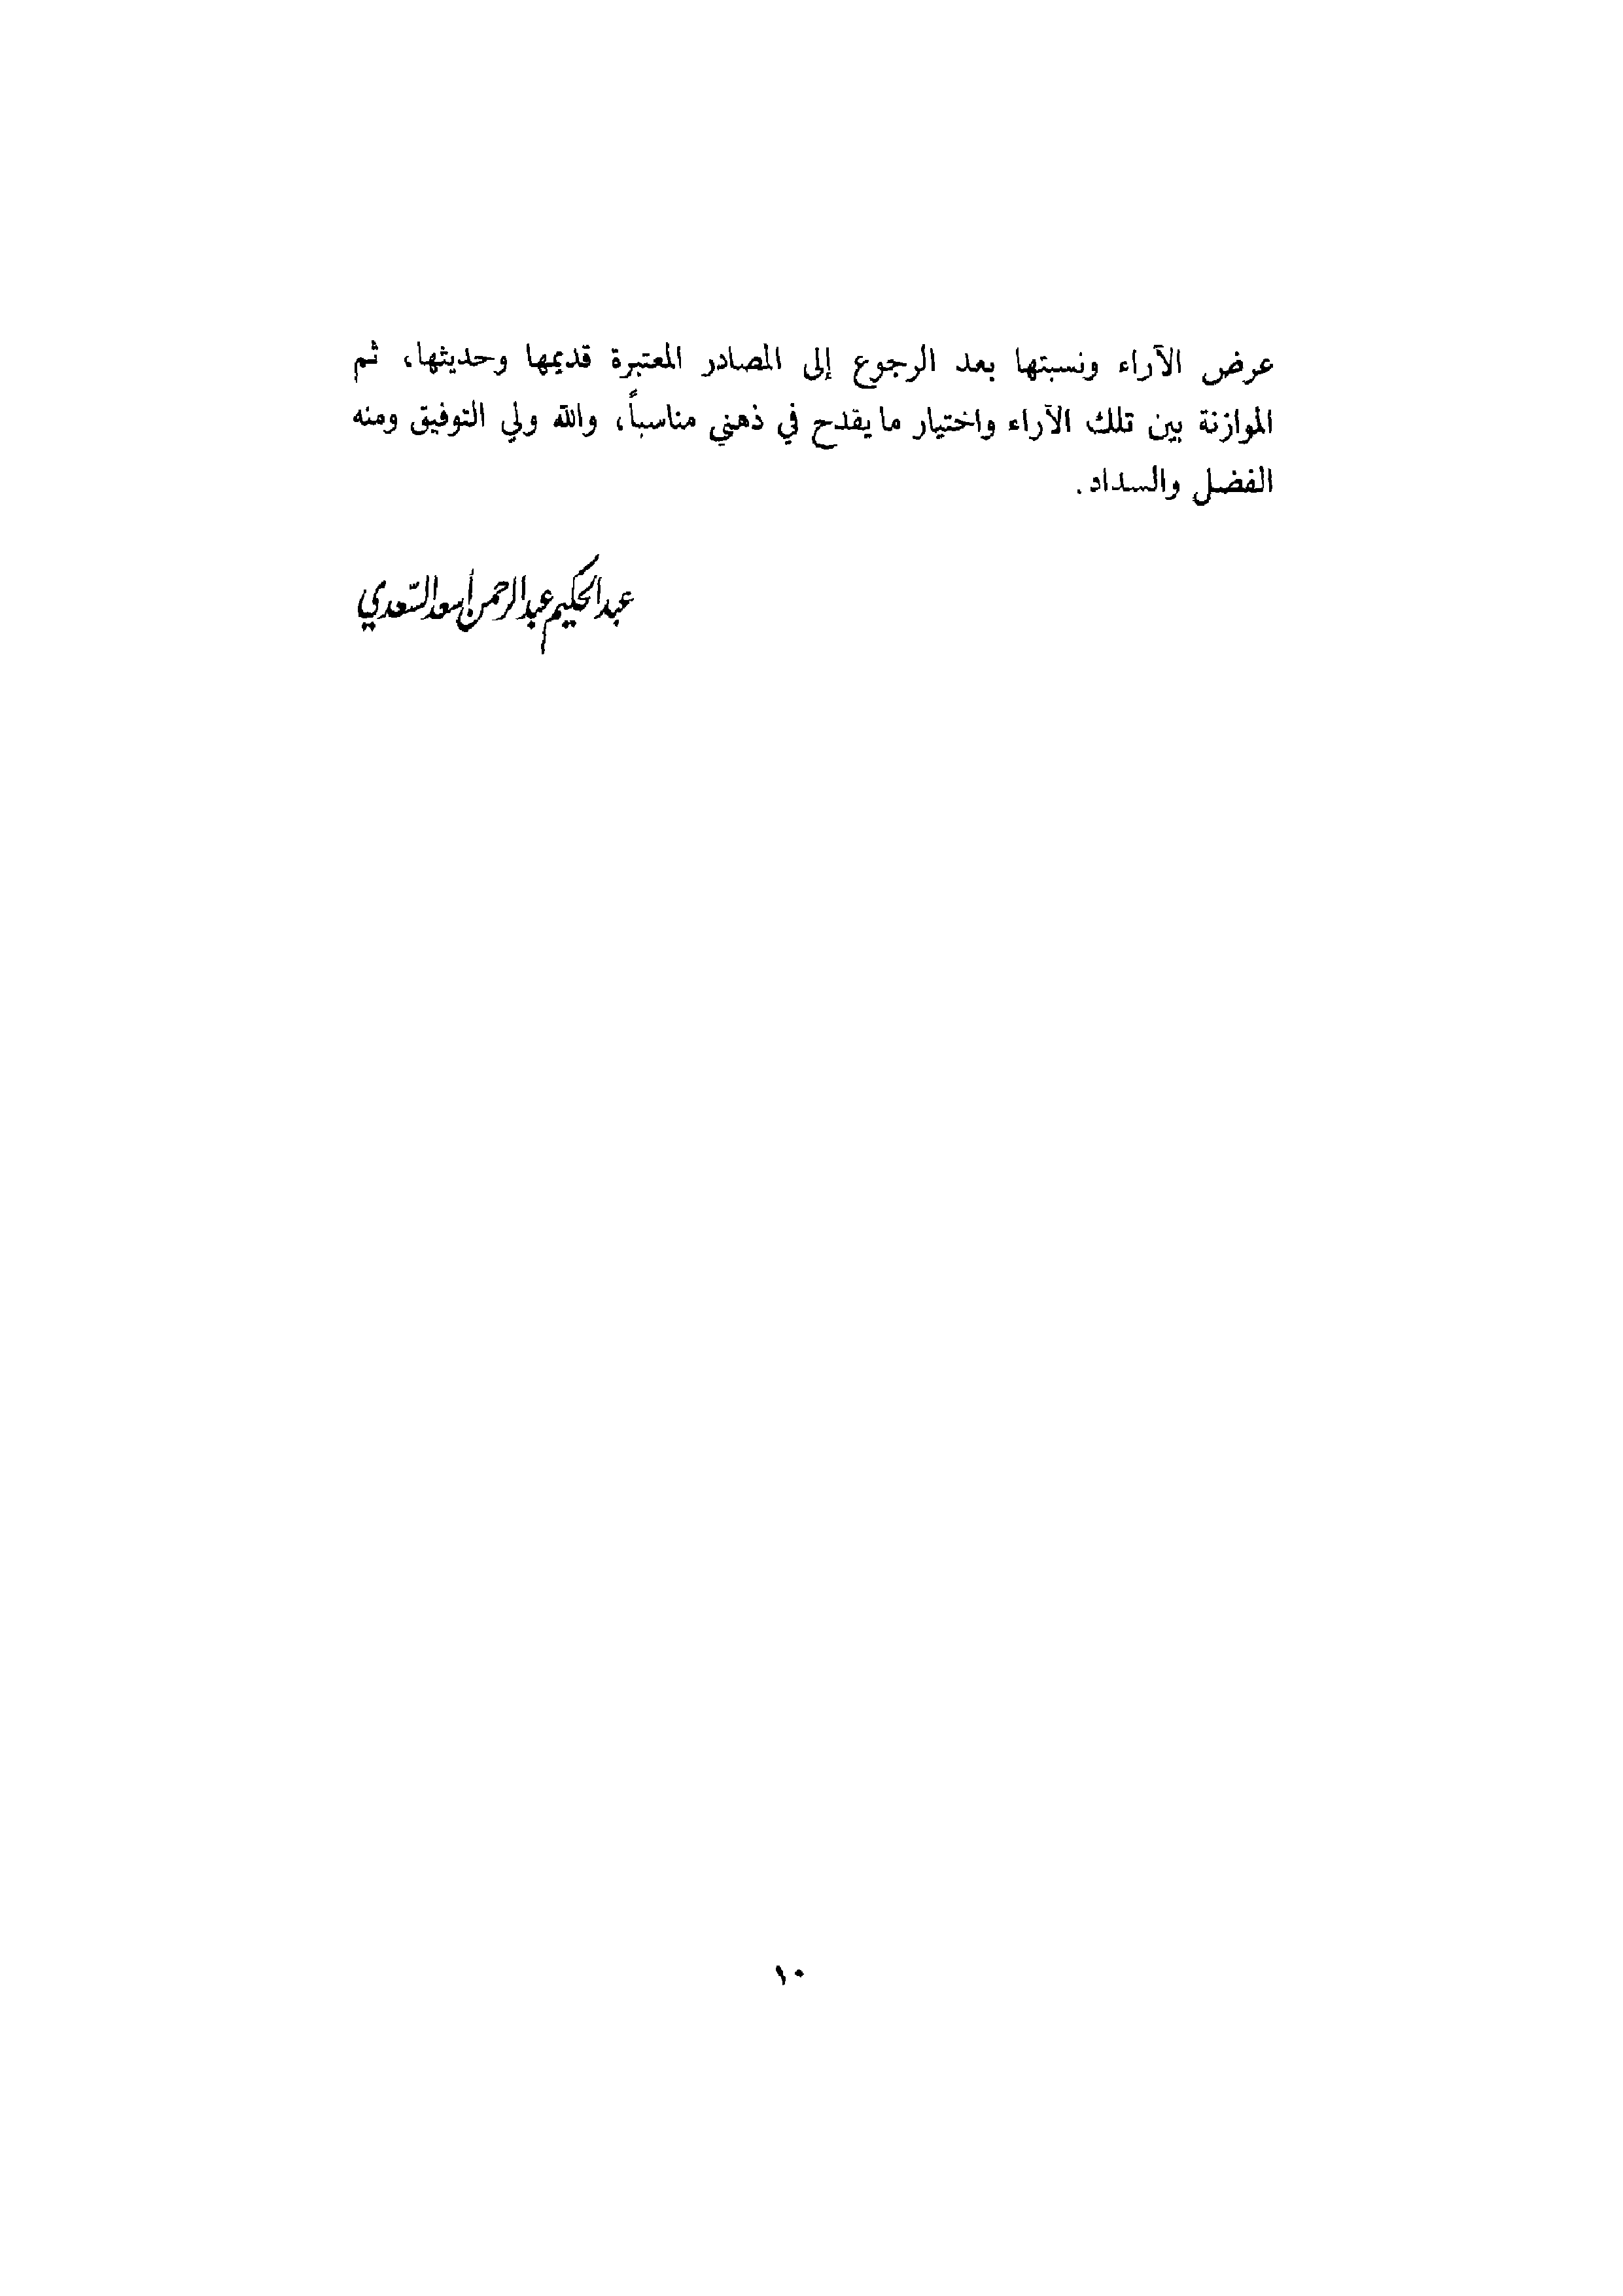 عرض الآراء ونسبتها بعد الرجوع إلى المصادر المعتبرة قديمها وحديثها، ثم
الموازنة بين تلك الآراء واختيار ما يقدح في ذهني مناسباً، والله ولي التوفيق ومنه
الفضل والسداد.
عبد الحكيم عبد الرحمن أسعد السّعدي
١٠